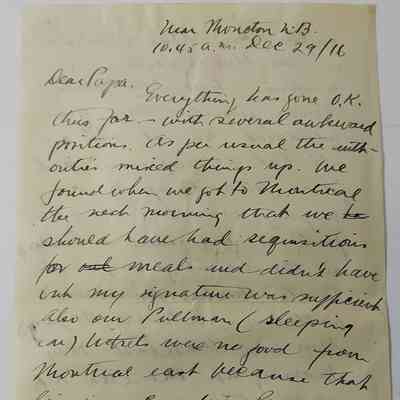 Near Moncton N.B.
10.45 a.m. Dec 29/16
Dear Papa.
Everything has gone O.K.
thus far - with several awkward
positions. As per usual the auth-
orities mixed things up. We
found when we got to Montreal
the next morning that we ha
should have had requisitions
for our meals and didn't have
but my signature was sufficient
also our Pullman (sleeping
car) tickets were no good from
Montreal east because that